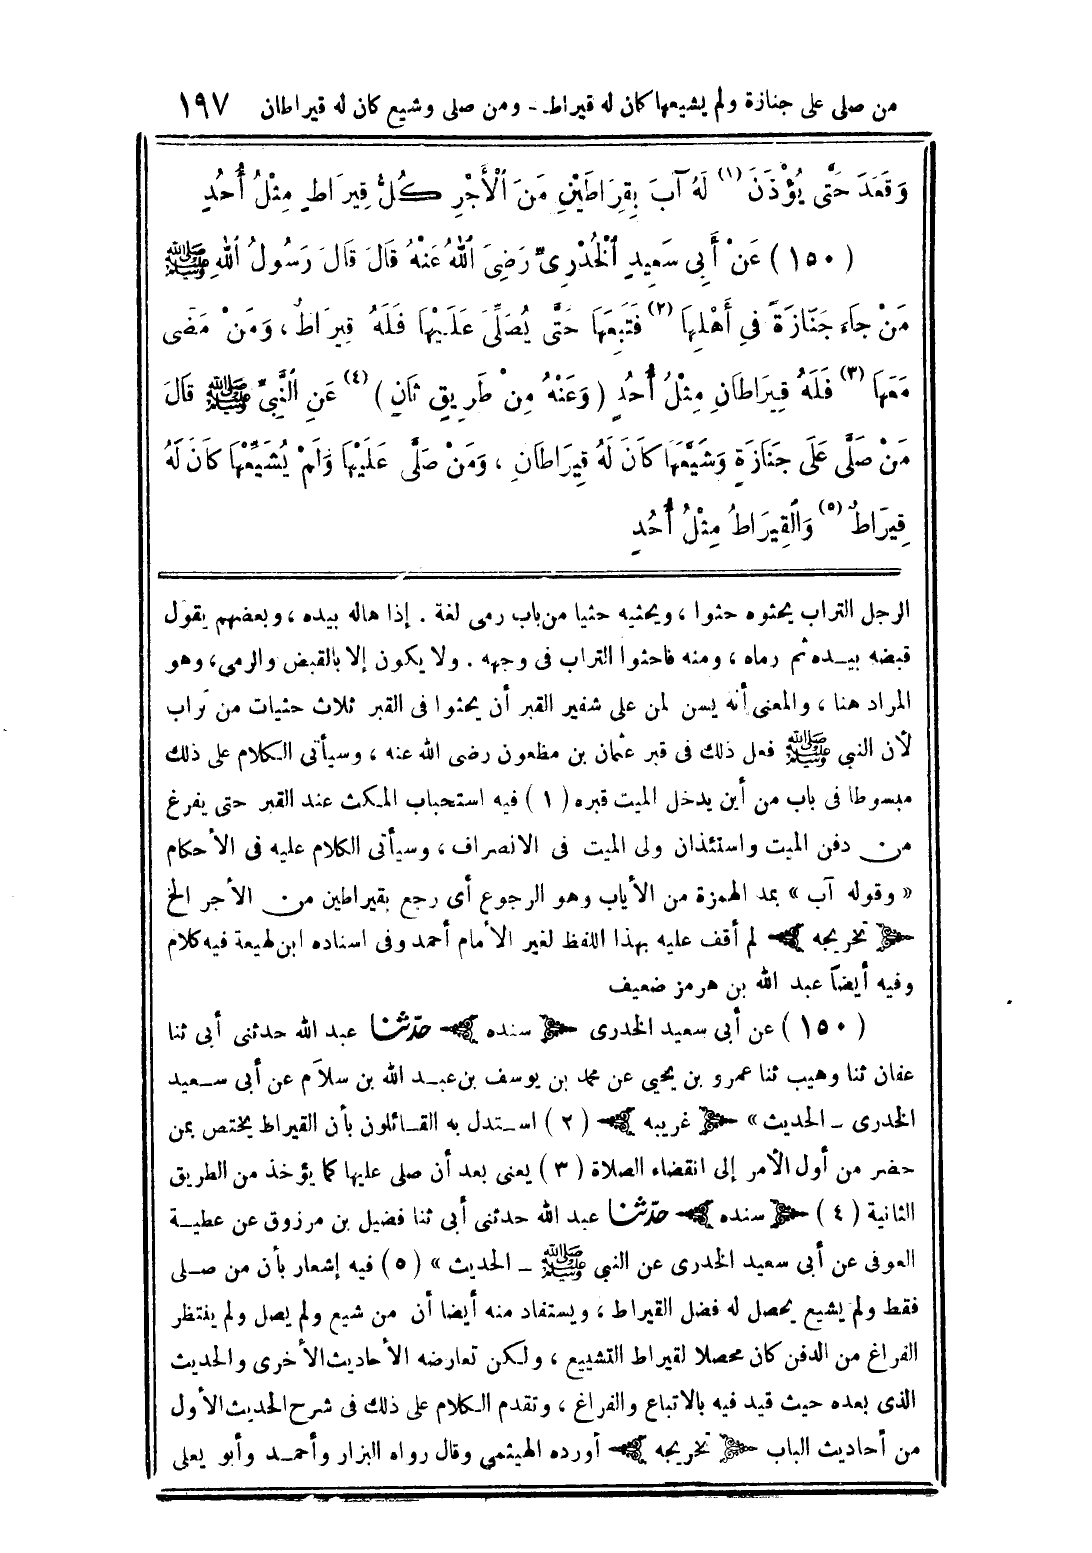 من صلى على جنازة ولم يشيعها كان له قيراط - ومن صلى وشيع كان له قيراطان ١٩٧
وَقَعَدَ حَتَّى يُؤْذَنَ (١) لَهُ آبَ بِقِرَاطَيْنِ مَنَ الْأَجْرِ كُلُّ قِيرَاطٍ مِثْلُ أُحُدٍ
(١٥٠) عَنْ أَبِي سَعِيدٍ الْخُدْرِىِّ رَضِىَ اللهُ عَنْهُ قَالَ قَالَ رَسُولُ اللهِ ﷺ
مَنْ جَاءَ جَنَازَةً فِي أَهْلِهَا (٢) فَتَبِعَهَا حَتَّى يُصَلِّىَ عَلَيْهَا فَلَهُ قِيرَاطٌ، وَمَنْ مَضَى
مَعَهَا (٣) فَلَهُ قِيرَاطَانِ مِثْلُ أُحُدٍ (وَعَنْهُ مِنْ طَرِيقٍ ثَانٍ) (٤) عَنِ النَّبِيِّ ﷺ قَالَ
مَنْ صَلَّى عَلَى جَنَازَةٍ وَشَيَّعَهَا كَانَ لَهُ قِيرَاطَانِ، وَمَنْ صَلَّى عَلَيْهَا وَلَمْ يُشَيِّعْهَا كَانَ لَهُ
قِيرَاطٌ (٥) وَالْقِيرَاطُ مِثْلُ أُحُدٍ
الرجل التراب يحثوه حثوا، ويحثيه حثيا من باب رمى لغة. إذا هاله بيده، وبعضهم يقول
قبضه بيده ثم رماه، ومنه فاحثوا التراب فى وجهه. ولا يكون إلا بالقبض والرمى، وهو
المراد هنا، والمعنى أنه يسن لمن على شفير القبر أن يحثوا فى القبر ثلاث حثيات من تراب
لأن النبي ﷺ فعل ذلك فى قبر عثمان بن مظعون رضى الله عنه، وسيأتى الكلام على ذلك
مبسوطا فى باب من أين يدخل الميت قبره (١) فيه استحباب المكث عند القبر حتى يفرغ
من دفن الميت واستئذان ولى الميت فى الانصراف، وسيأتى الكلام عليه فى الأحكام
« وقوله آب » بمد الهمزة من الأياب وهو الرجوع أى رجع بقيراطين من الأجر الخ
﴿ تخريجه ﴾ لم أقف عليه بهذا اللفظ لغير الأمام أحمد وفى اسناده ابن لهيعة فيه كلام
وفيه أيضاً عبد الله بن هرمز ضعيف
(١٥٠) عن أبى سعيد الخدرى ﴿ سنده ﴾ حدّثنا عبد الله حدثنى أبى ثنا
عفان ثنا وهيب ثنا عمرو بن يحيى عن محمد بن يوسف بن عبد الله بن سلام عن أبى سعيد
الخدرى ـ الحديث » ﴿ غريبه ﴾ (٢) استدل به القائلون بأن القيراط يختص بمن
حضر من أول الأمر إلى انقضاء الصلاة (٣) يعنى بعد أن صلى عليها كما يؤخذ من الطريق
الثانية (٤) ﴿ سنده ﴾ حدّثنا عبد الله حدثنى أبى ثنا فضيل بن مرزوق عن عطية
العوفى عن أبى سعيد الخدرى عن النبي ﷺ ـ الحديث » (٥) فيه إشعار بأن من صلى
فقط ولم يشيع يحصل له فضل القيراط، ويستفاد منه أيضا أن من شيع ولم يصل ولم ينتظر
الفراغ من الدفن كان محصلا لقيراط التشييع، ولكن تعارضه الأحاديث الأخرى والحديث
الذى بعده حيث قيد فيه بالاتباع والفراغ، وتقدم الكلام على ذلك فى شرح الحديث الأول
من أحاديث الباب ﴿ تخريجه ﴾ أورده الهيثمى وقال رواه البزار وأحمد وأبو يعلى